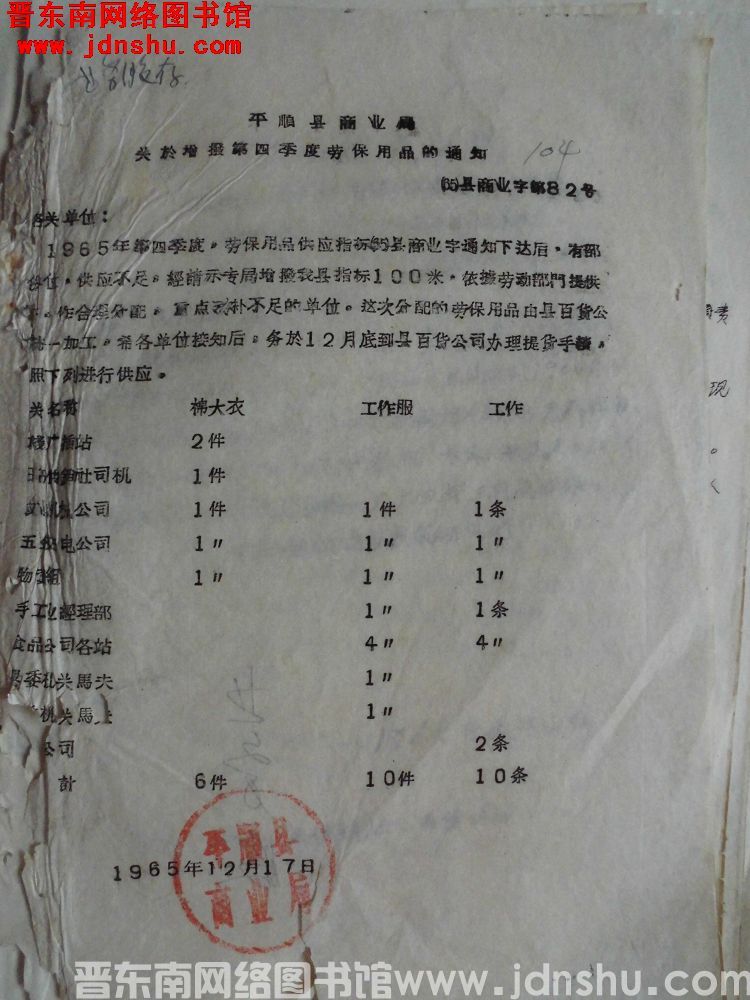 晋东南网络图书馆
www.jdnshu.com
平順县商业局
关於增撥第四季度劳保用品的通知
104
(65)县商业字第82号
各关单位：
1965年第四季度。劳保用品供应指标(65)县商业字通知下达后，有部
位，供应不足。經請示专局增撥我县指标100米，依据劳动部門提供
，作合理分配，重点弥补不足的单位。这次分配的劳保用品由县百货公
一加工。希各单位接知后，务於12月底到县百货公司办理提货手續，
照下列进行供应。
关名称 棉大衣 工作服 工作
广播站 2件
司机 1件
公司 1件 1件 1条
五 电公司 1〃 1〃 1〃
物 1〃 1〃 1〃
手工业經理部 1〃 1条
食品公司各站 4〃 4〃
委机关馬夫 1〃
机关馬夫 1〃
公司 2条
計 6件 10件 10条
1965年12月17日
平順县
商业局
现
晋东南网络图书馆www.jdnshu.com